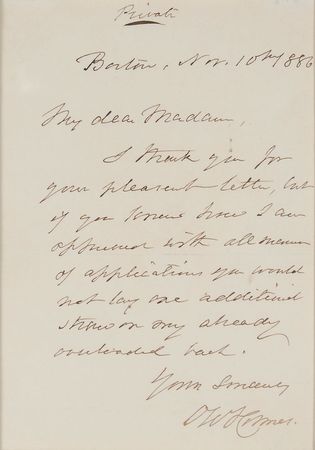 Private
Boston, Nov. 10th 1886
My dear Madam,
I thank you for
your pleasant letter, but
if you knew how I am
oppressed with all manner
of applications you would
not lay one additional
straw on my already
overloaded back.
Yours Sincerely
O W Holmes.